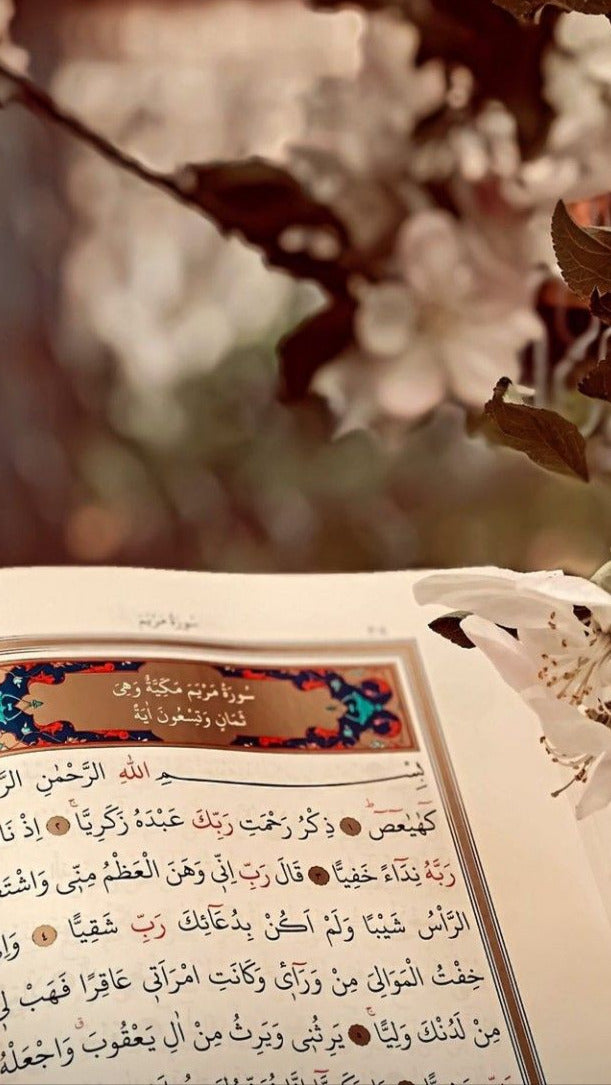 سُورَةُ مَرْيَمَ
سُورَةُ مَرْيَمَ مَكِّيَّةٌ وَهِىَ
ثَمَانٍ وَتِسْعُونَ اٰيَةً
بِسْــــمِ اللّٰهِ الرَّحْمٰنِ
كٓهٰيٰعٓصٓ ١ ذِكْرُ رَحْمَتِ رَبِّكَ عَبْدَهُ زَكَرِيَّا ٢ اِذْ
رَبَّهُ نِدَٓاءً خَفِيًّا ٣ قَالَ رَبِّ اِنّ۪ى وَهَنَ الْعَظْمُ مِنّ۪ى
الرَّأْسُ شَيْبًا وَلَمْ اَكُنْ بِدُعَٓائِكَ رَبِّ شَقِيًّا ٤
خِفْتُ الْمَوَالِىَ مِنْ وَرَٓاء۪ى وَكَانَتِ امْرَاَت۪ى عَاقِرًا فَهَبْ
مِنْ لَدُنْكَ وَلِيًّا ٥ يَرِثُن۪ى وَيَرِثُ مِنْ اٰلِ يَعْقُوبَ وَاجْعَلْهُ